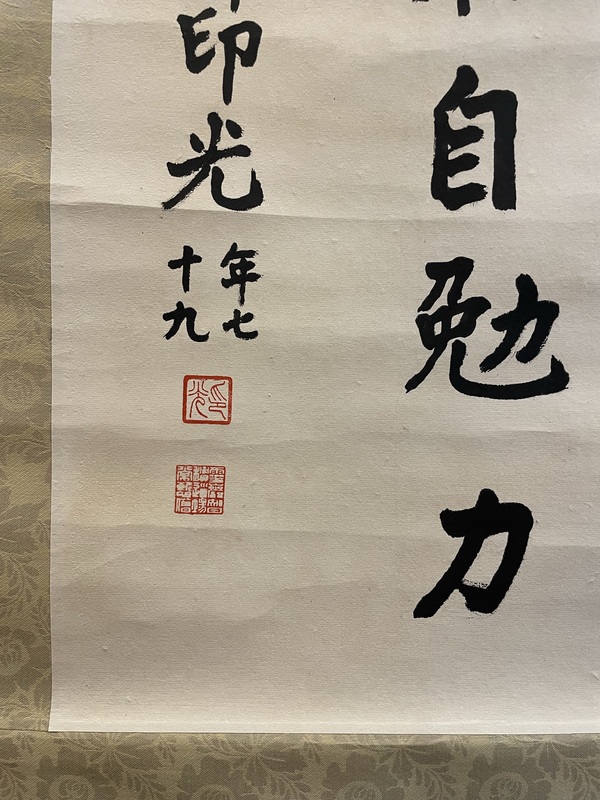 自勉力
印光
年七
十九
印光